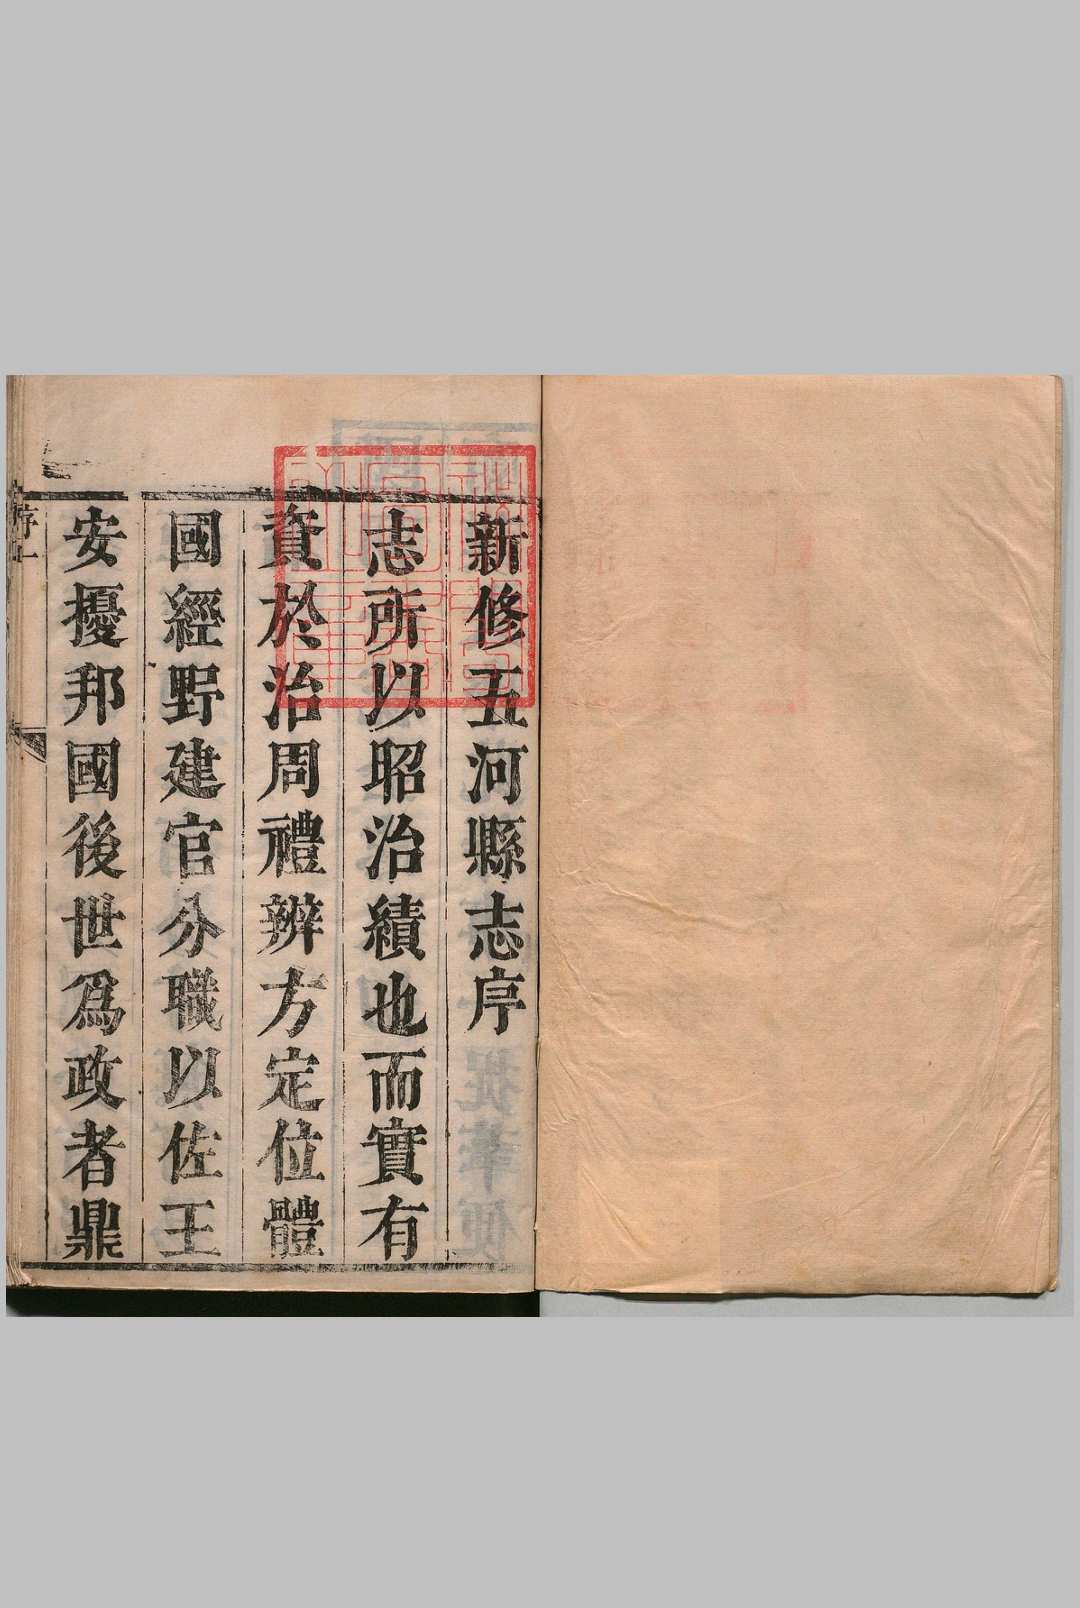 新修五河縣志序
志所以昭治績也而實有
資於治周禮辨方定位體
國經野建官分職以佐王
安擾邦國後世爲政者鼎
序一